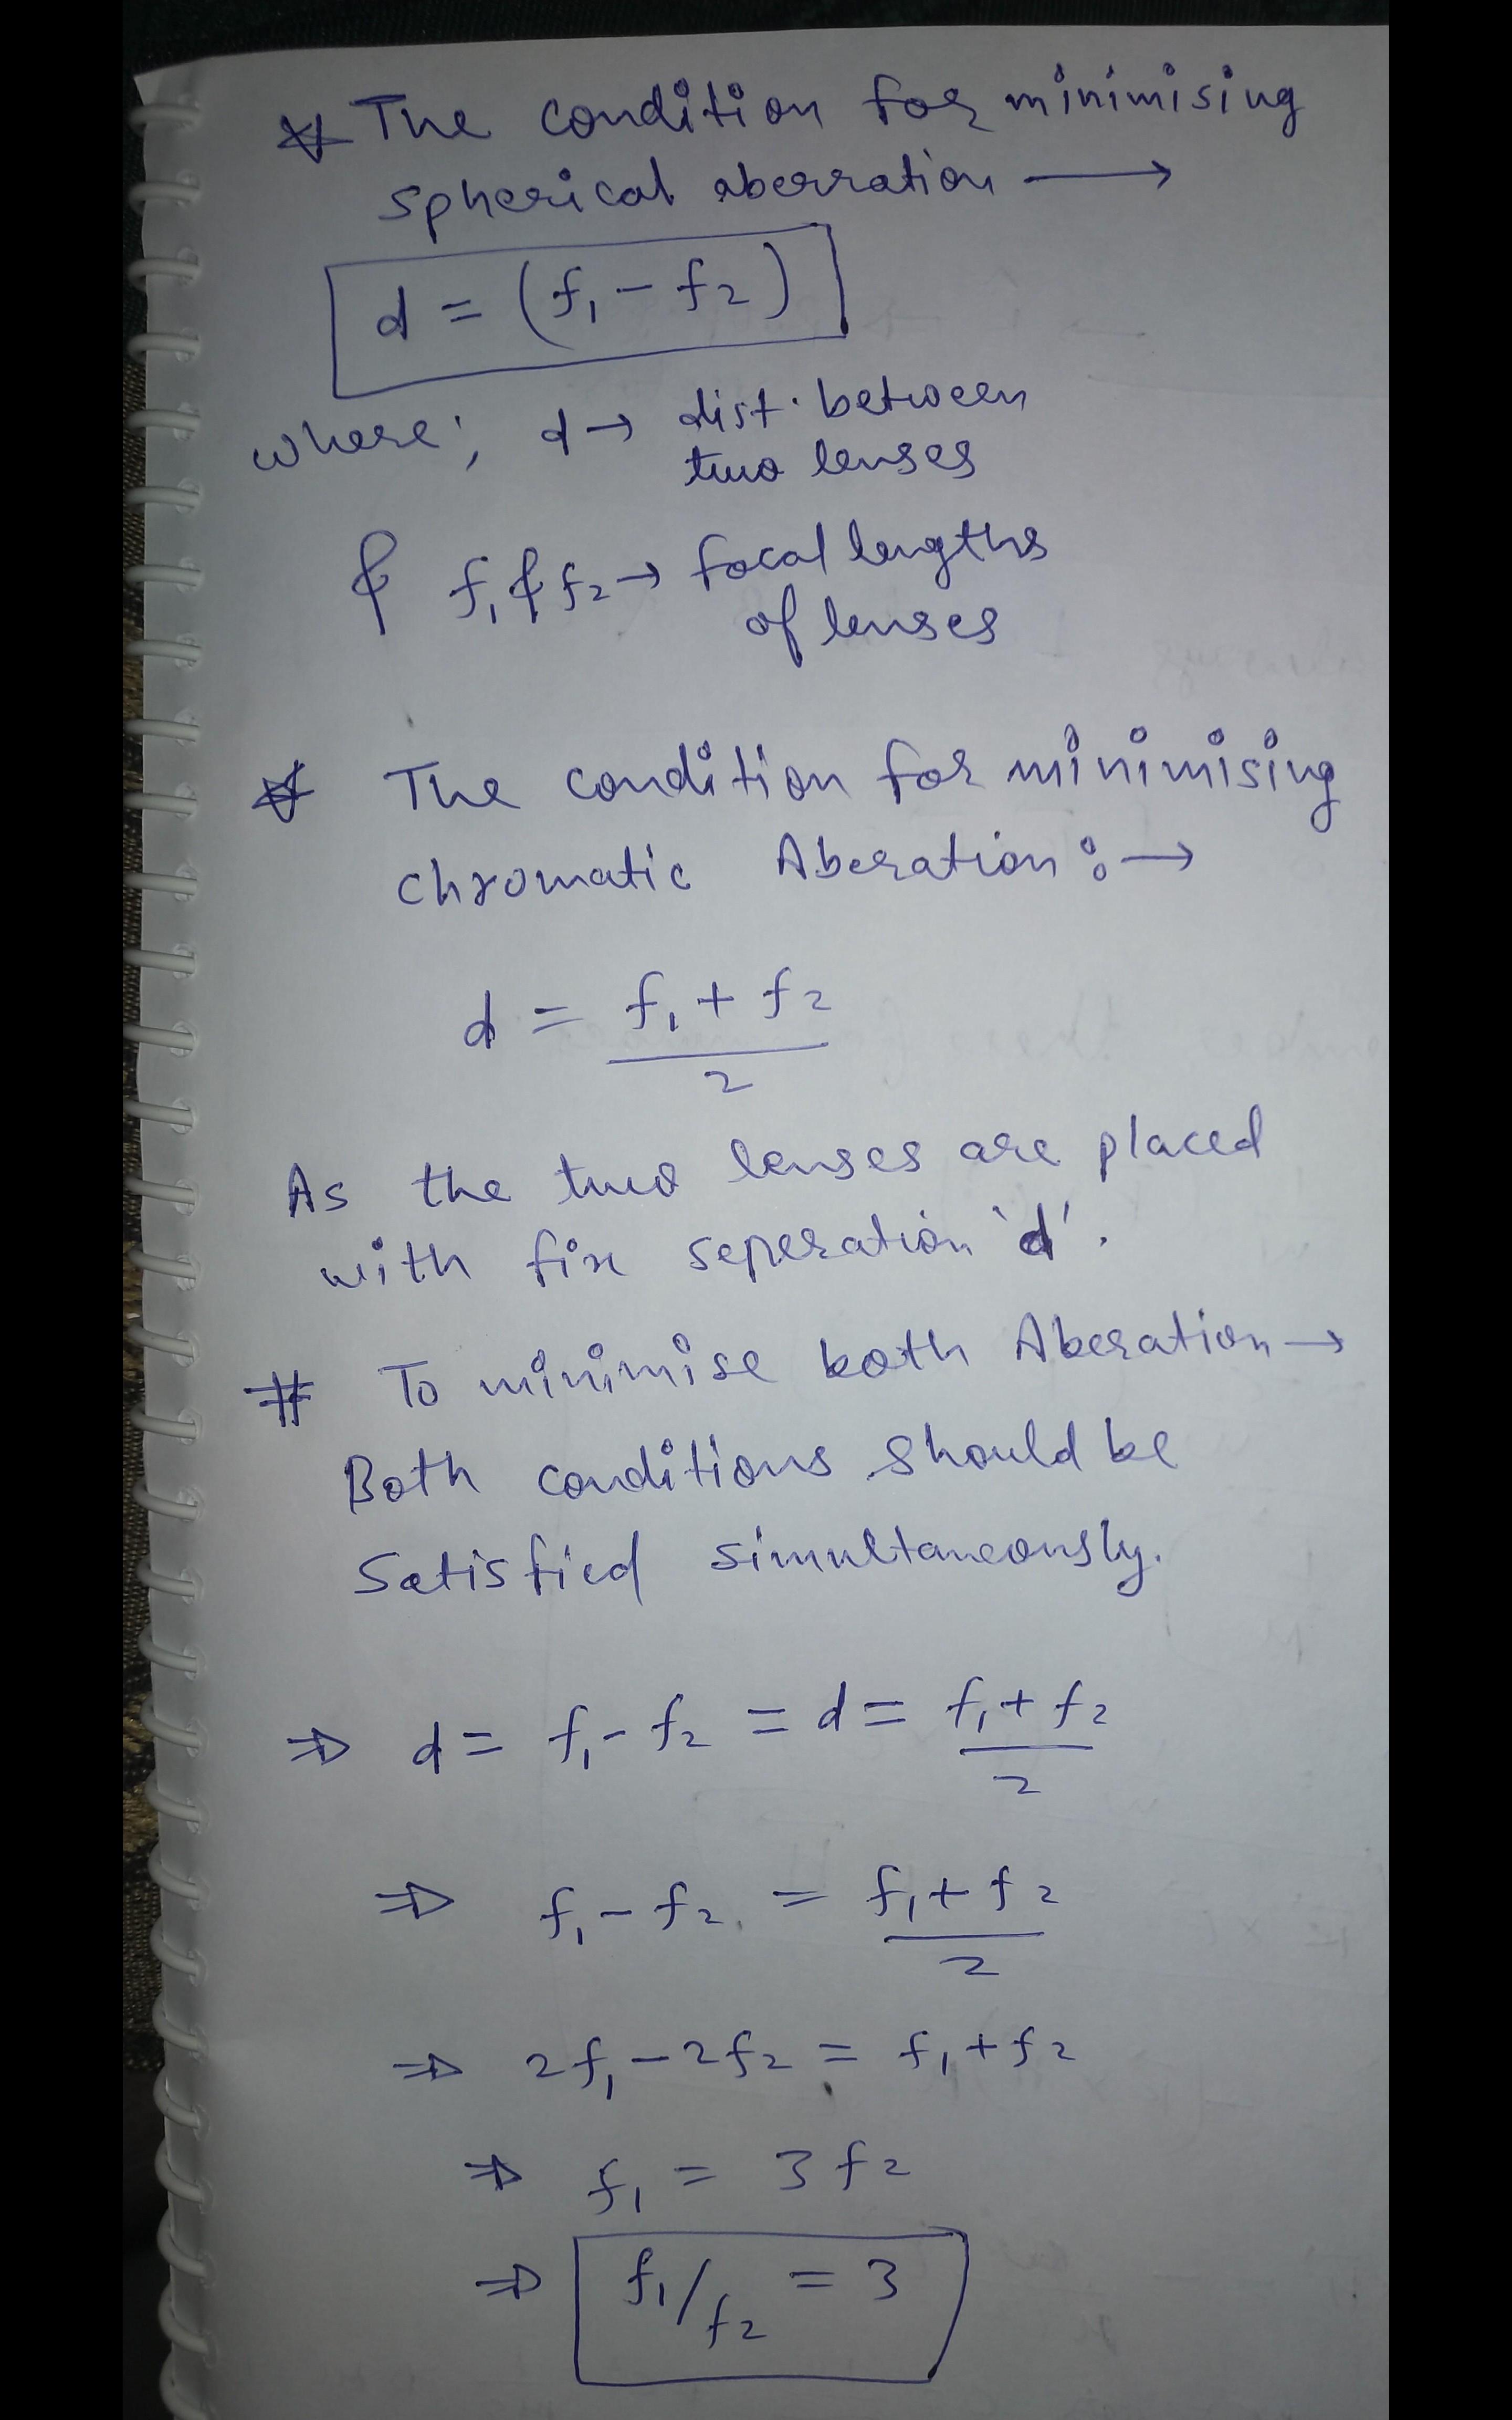 * The condition for minimising
spherical aberration →
d = (f₁ - f₂)
where; d → dist. between
two lenses
& f₁ & f₂ → focal lengths
of lenses
* The condition for minimising
chromatic Aberation: →
d = f₁ + f₂
2
As the two lenses are placed
with fix seperation 'd'.
# To minimise both Aberation →
Both conditions should be
Satisfied simultaneously.
⇒ d = f₁ - f₂ = d = f₁ + f₂
2
⇒ f₁ - f₂ = f₁ + f₂
2
⇒ 2f₁ - 2f₂ = f₁ + f₂
⇒ f₁ = 3f₂
⇒ f₁/f₂ = 3